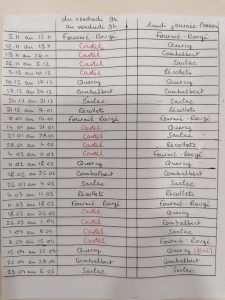 du vendredi 9h au vendredi 9h | lundi journée
5.11 au 12.11 | Fournié-Rougé
12.11 au 19.11 | Castel | Quercy
19.11 au 26.11 | Castel | Combalbert
26.11 au 3.12 | Castel | Sarlac
3.12 au 10.12 | Castel | Récollets
10.12 au 17.12 | Quercy | Quercy
17.12 au 24.12 | Combalbert | Combalbert
24.12 au 31.12 | Sarlac | Sarlac
31.12 au 7.01 | Récollets | Récollets
7.01 au 14.01 | Fournié-Rougé | Fournié-Rougé
14.01 au 21.01 | Castel | Quercy
21.01 au 28.01 | Castel | Sarlac
28.01 au 4.02 | Castel | Récollets
4.02 au 11.02 | Castel | Fournié-Rougé
11.02 au 18.02 | Quercy | Quercy
18.02 au 25.02 | Combalbert | Combalbert
25.02 au 4.03 | Sarlac | Sarlac
4.03 au 11.03 | Récollets | Récollets
11.03 au 18.03 | Fournié-Rougé | Fournié-Rougé
18.03 au 25.03 | Castel | Quercy
25.03 au 1.04 | Castel | Combalbert
1.04 au 8.04 | Castel | Sarlac
8.04 au 15.04 | Castel | Fournié-Rougé
15.04 au 22.04 | Quercy | Quercy
22.04 au 29.04 | Combalbert | Combalbert
29.04 au 6.05 | Sarlac | Sarlac